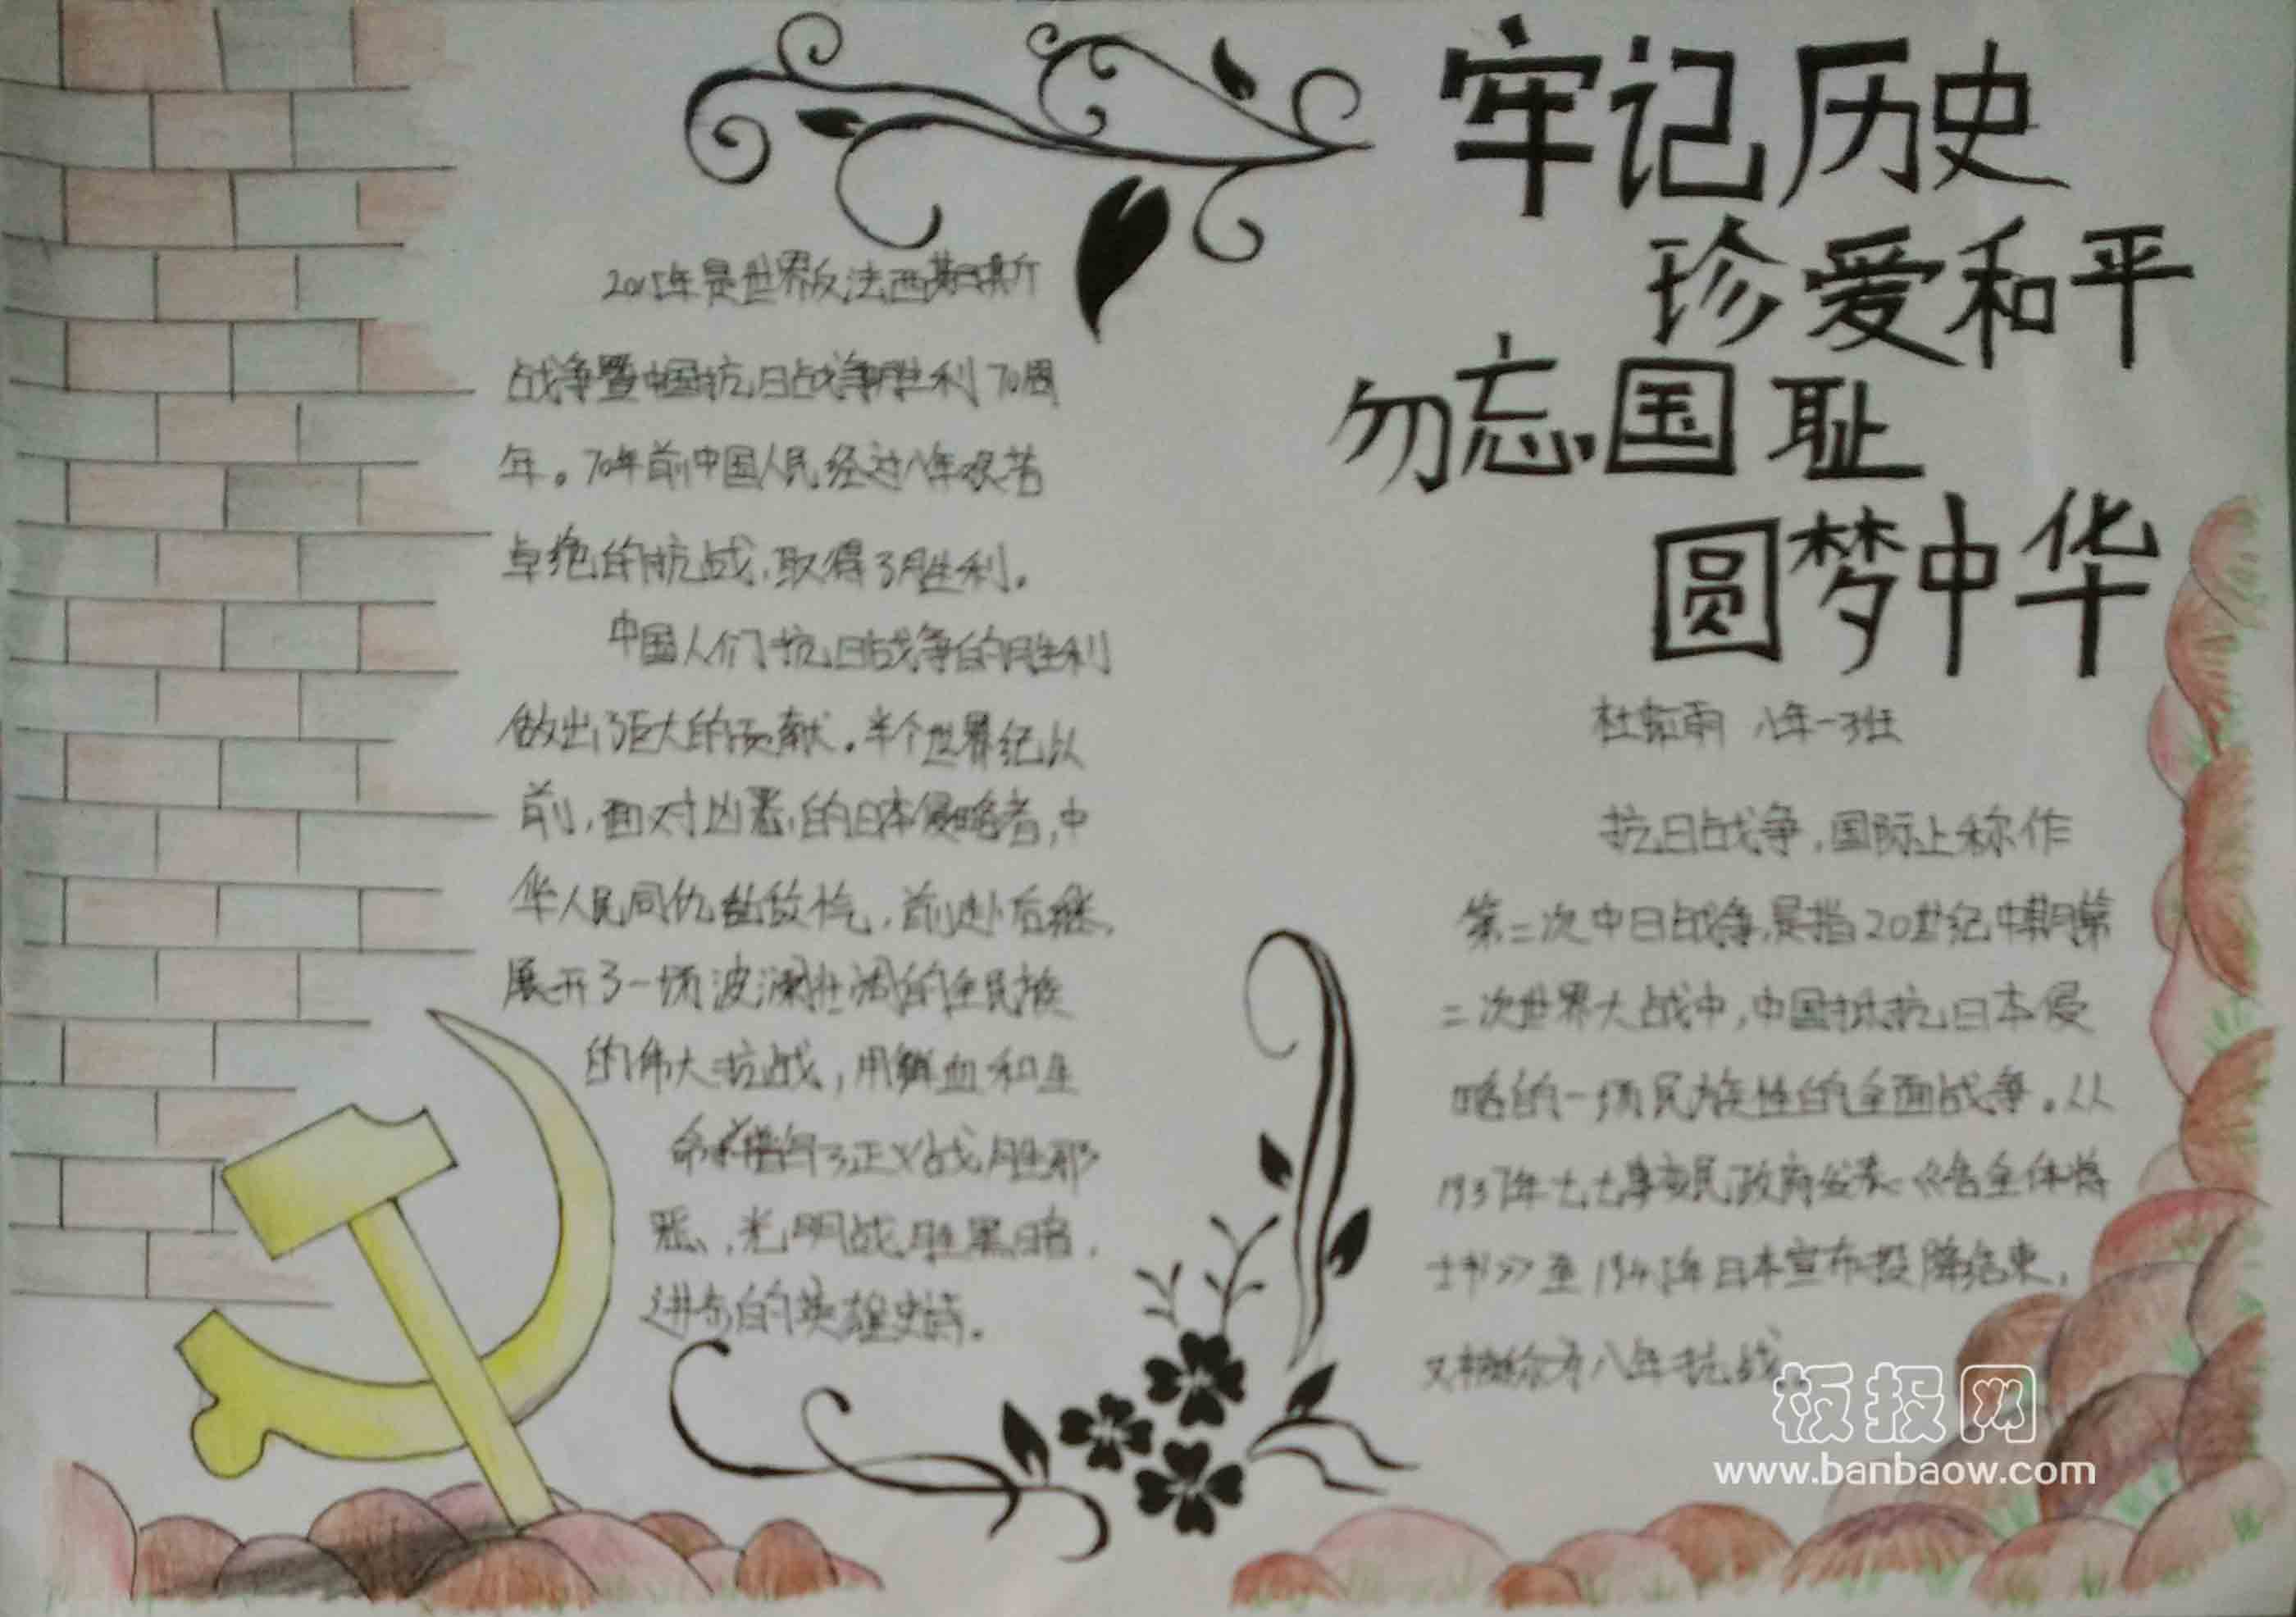 牢记历史
珍爱和平
勿忘国耻
圆梦中华
2015年是世界反法西斯
战争暨中国抗日战争胜利70周
年。70年前中国人民经过八年艰苦
卓绝的抗战,取得了胜利。
中国人们抗日战争的胜利
做出了巨大的贡献。半个世界纪以
前,面对凶恶的日本侵略者,中
华人民同仇敌忾,前赴后继,
展开了一场波澜壮阔的全民族
的伟大抗战,用鲜血和生
命谱写了正义战胜邪
恶,光明战胜黑暗,
进步的英雄史诗。
杜 雨 八年一班
抗日战争,国际上称作
第二次中日战争,是指20世纪中期第
二次世界大战中,中国抵抗日本侵
略的一场民族性的全面战争。从
1937年七七事变民政府发表《告全体将
士书》至1945年日本宣布投降结束,
又被称为八年抗战。
板报网
www.banbaow.com